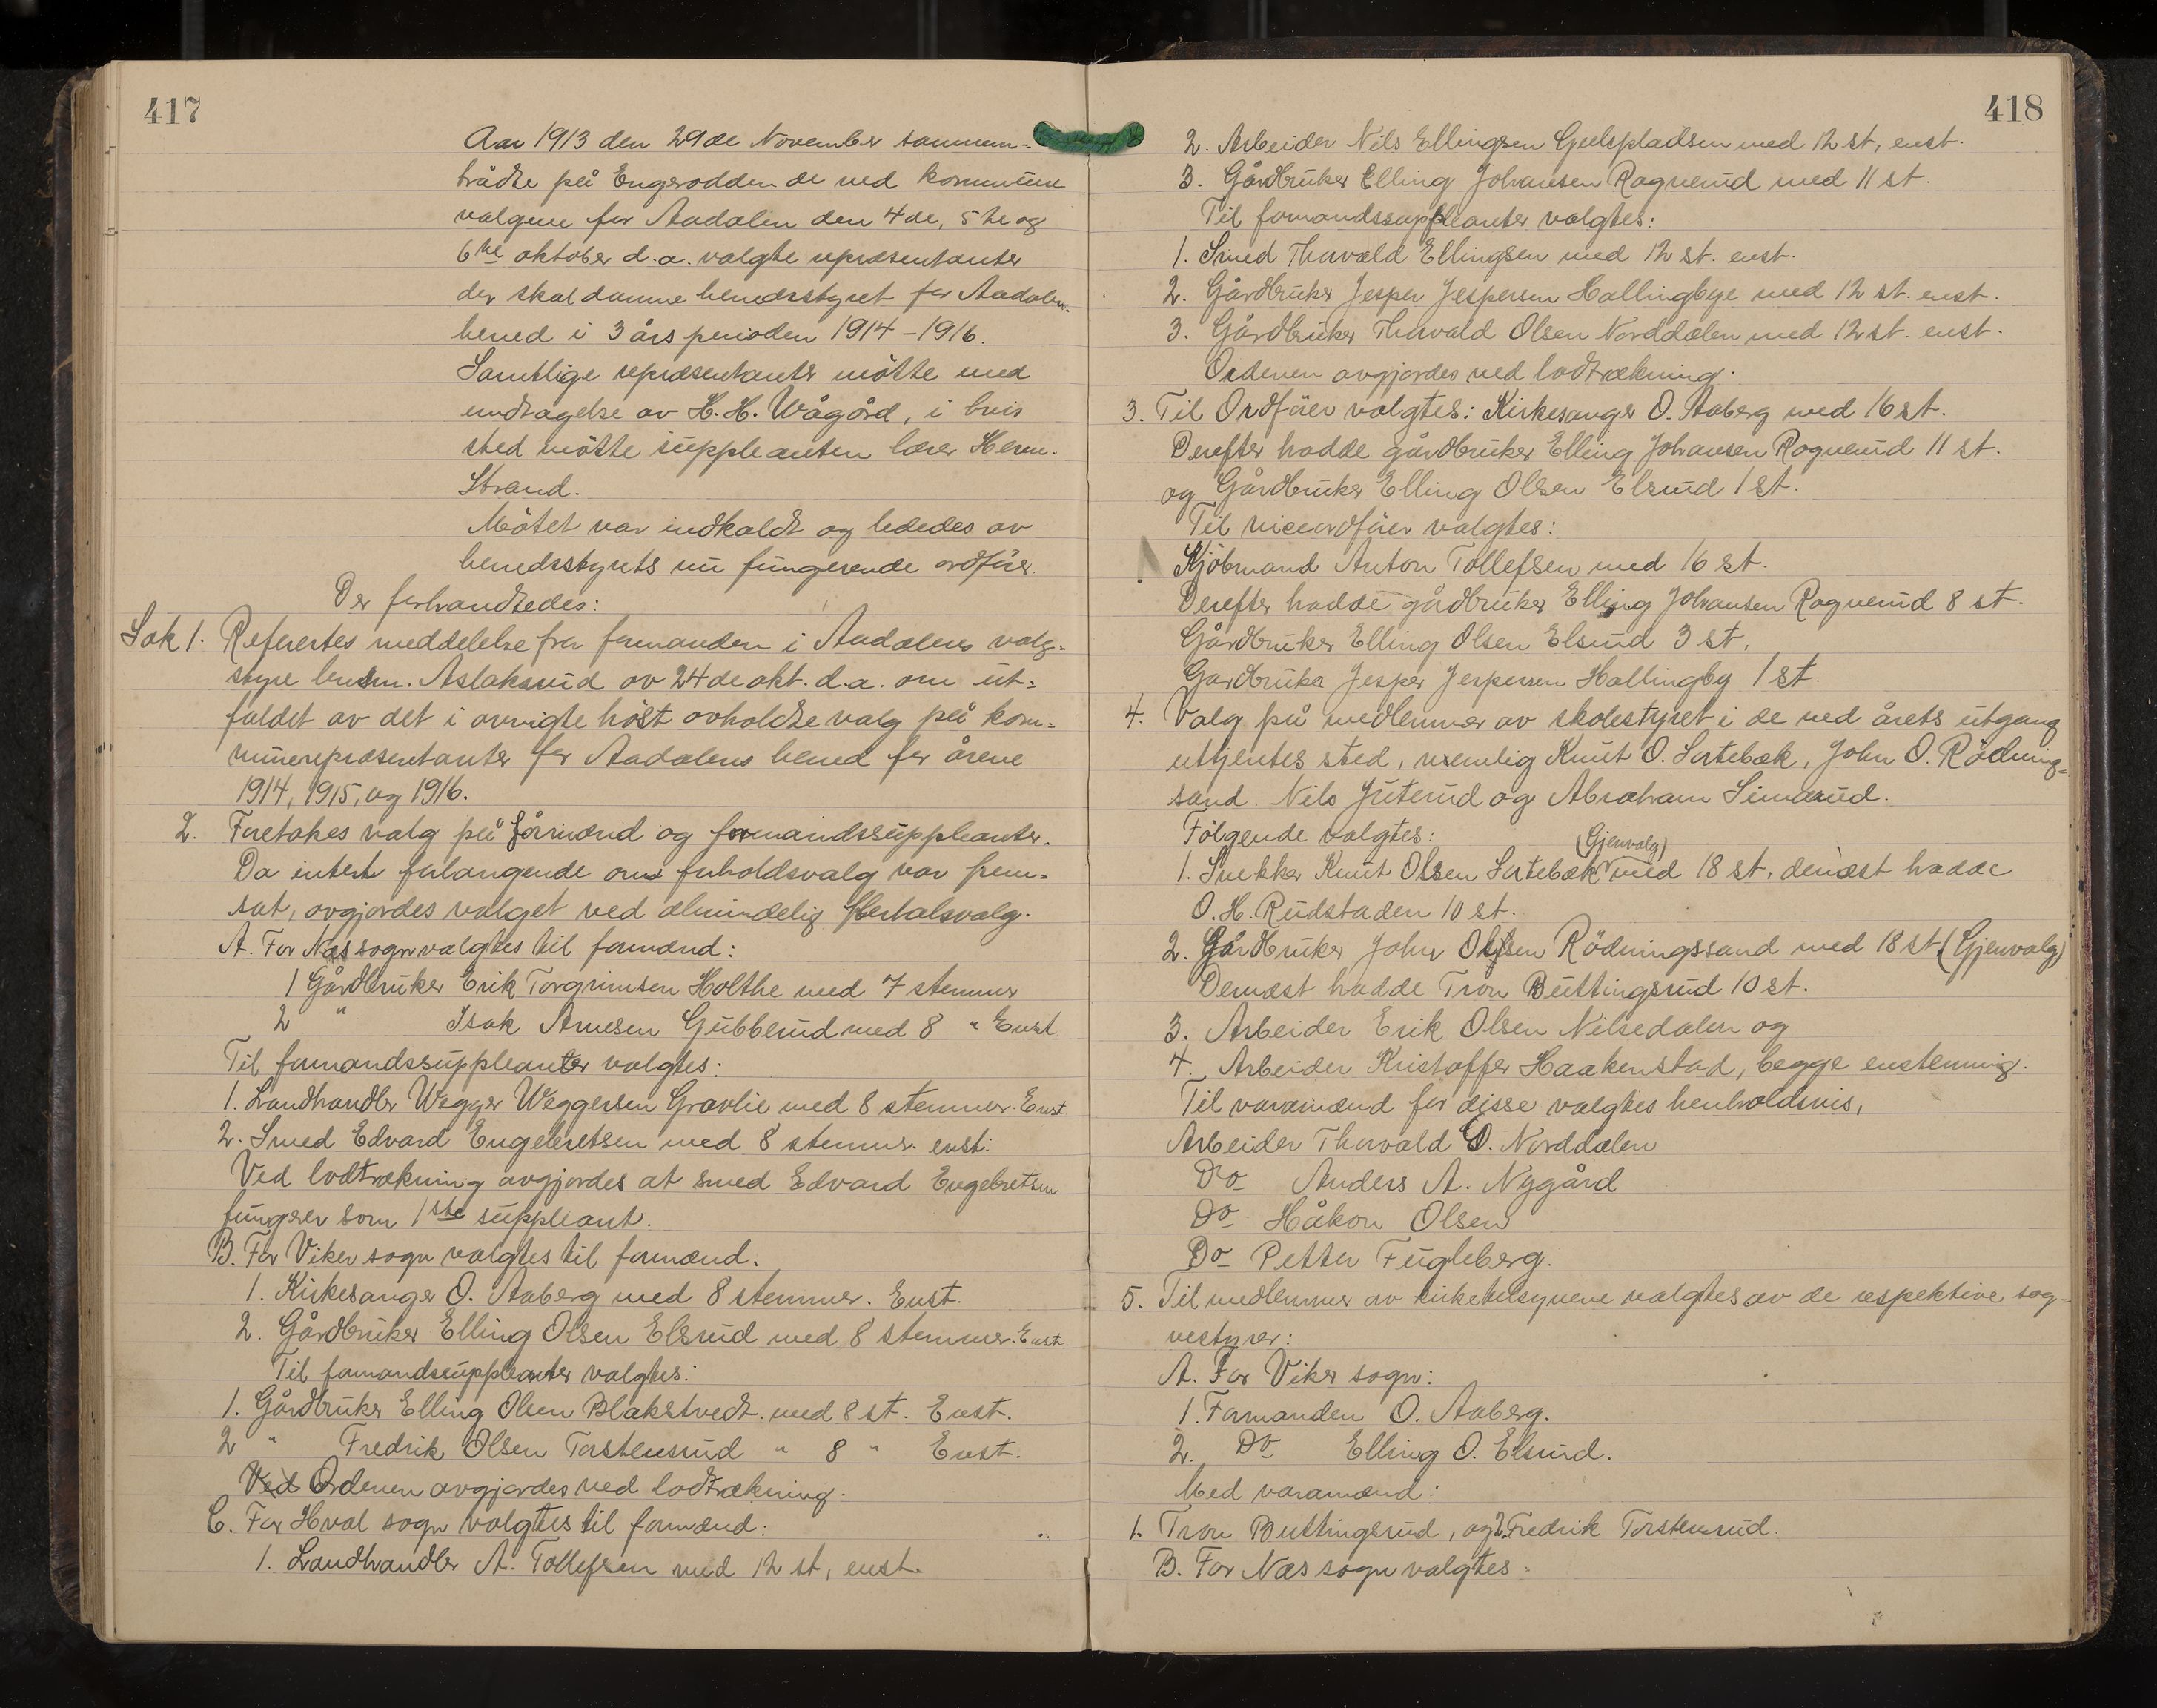 417
Aar 1913 den 29de November sammen=
trådte på Engerodden de ved kommune
valgene for Aadalen den 4de, 5te og
6te oktober d.a. valgte repræsentanter
der skal danne herredsstyret for Aadalens
herred i 3 års perioden 1914-1916.
Samtlige repræsentanter mötte med
undtagelse av H. H. Wågård, i hvis
sted mötte suppleanten lærer Herm.
Strand.
Mötet var indkaldt og lededes av
herredsstyrets nu fungerende ordfører.
Der forhandledes:
Sak 1. Refereres meddelelse fra formanden i Aadalens valg-
styre lensm. Aslaksrud av 24de okt. d.a. om ut=
faldet av det i avvigte höst avholdte valg på kom=
munerepræsentanter for Aadalens herred for årene
1914, 1915, og 1916.
2. Foretakes valg på formænd og formandssuppleanter.
Da intet forlangende om forholdsvalg var frem=
sat, avgjordes valget ved almindelig flertalsvalg.
A. For Næs sogn valgtes til formænd:
1 Gårdbruker Erik Torgrimsen Holthe med 7 stemmer
2 " Isak Arnesen Gubberud med 8 " Enst
Til formandssuppleanter valgtes:
1. Landhandler Wegger Weggersen Gravlie med 8 stemmer. Enst
2. Smed Edvard Engebretsen med 8 stemmer. enst:
Ved lodtrækning avgjordes at smed Edvard Engebretsen
fungerer som 1ste suppleant.
B. For Viker sogn valgtes til formænd.
1. Kirkesanger O. Aaberg med 8 stemmer. Enst.
2. Gårdbruker Elling Olsen Elsrud med 8 stemmer. Enst
Til formandssuppleanter valgtes:
1. Gårdbruker Elling Olsen Blakstvedt. med 8 st. Enst.
2 " Fredrik Olsen Torstensrud " 8 " Enst.
Ved Ordenen avgjordes ved lodtrækning.
C. For Hval sogn valgtes til formænd:
1. Landhandler A. Tollefsen med 12 st, enst.
418
2. Arbeider Nils Ellingsen Geelspladsen med 12 st, enst.
3. Gårdbruker Elling Johansen Ragnerud med 11 st.
Til formandssuppleanter valgtes:
1. Smed Thorvald Ellingsen med 12 st. enst.
2. Gårdbruker Jesper Jespersen Hallingbye med 12 st. enst.
3. Gårdbruker Thorvald Olsen Norddalen med 12 st. enst.
Ordenen avgjordes ved lodtrækning.
3. Til Ordförer valgtes: Kirkesanger O. Aaberg med 16 st.
Derefter hadde gårdbruker Elling Johansen Ragnerud 11 st.
og Gårdbruker Elling Olsen Elsrud 1 st.
Til viceordförer valgtes:
Kjöbmand Anton Tollefsen med 16 st.
Derefter hadde gårdbruker Elling Johansen Ragnerud 8 st.
Gårdbruker Elling Olsen Elsrud 3 st,
Gardbruker Jesper Jespersen Hallingby 1 st.
4. Valg på medlemmer av skolestyret i de ved årets utgang
uttjentes sted, nemlig Knut O. Sørtebæk, John O. Rödning=
sand Nils Juterud og Abraham Simarud.
Fölgende valgtes:
(Gjenvalg)
1. Snekker Knut Olsen Sørtebæk med 18 st. dernæst hadde
O. H. Rudstaden 10 st.
2. Gårdbruker John Olsen Rödningssand med 18 st (Gjenvalg)
Dernæst hadde Tron Buttingsrud 10 st.
3. Arbeider Erik Olsen Nilsedalen og
4. Arbeider Kristoffer Haakenstad, begge enstemmig.
Til varamænd for disse valgtes henholdsvis,
Arbeider Thorvald O. Norddalen
Do Anders A. Nygård
Do Håkon Olsen
Do Petter Fugleberg.
5. Til medlemmer av kirketilsynene valgtes av de respektive sog-
nestyrer:
A. For Viker sogn:
1. Formanden O. Aaberg.
2. Do Elling O. Elsrud.
Med varamænd:
1. Tron Buttingsrud, og 2. Fredrik Torstensrud.
B. For Næs sogn valgtes: